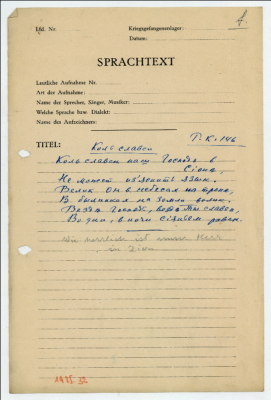 4.
Lfd. Nr.
Kriegsgefangenenlager:
Datum:
SPRACHTEXT
Lautliche Aufnahme Nr.
Art der Aufnahme:
Name der Sprecher, Sänger, Musiker:
Welche Sprache bzw. Dialekt:
Name des Aufzeichners:
P.K. 146
TITEL: Коль славен
Коль славен наш Господь в
Сіонѣ,
Не может изъяснить язык.
Велик он в небесах на троне,
В былинках на земли велик.
Везде Господь, везде Ты славен,
В дни, в ночи сіянием равен.
Wie herrlich ist unser Herr
in Zion